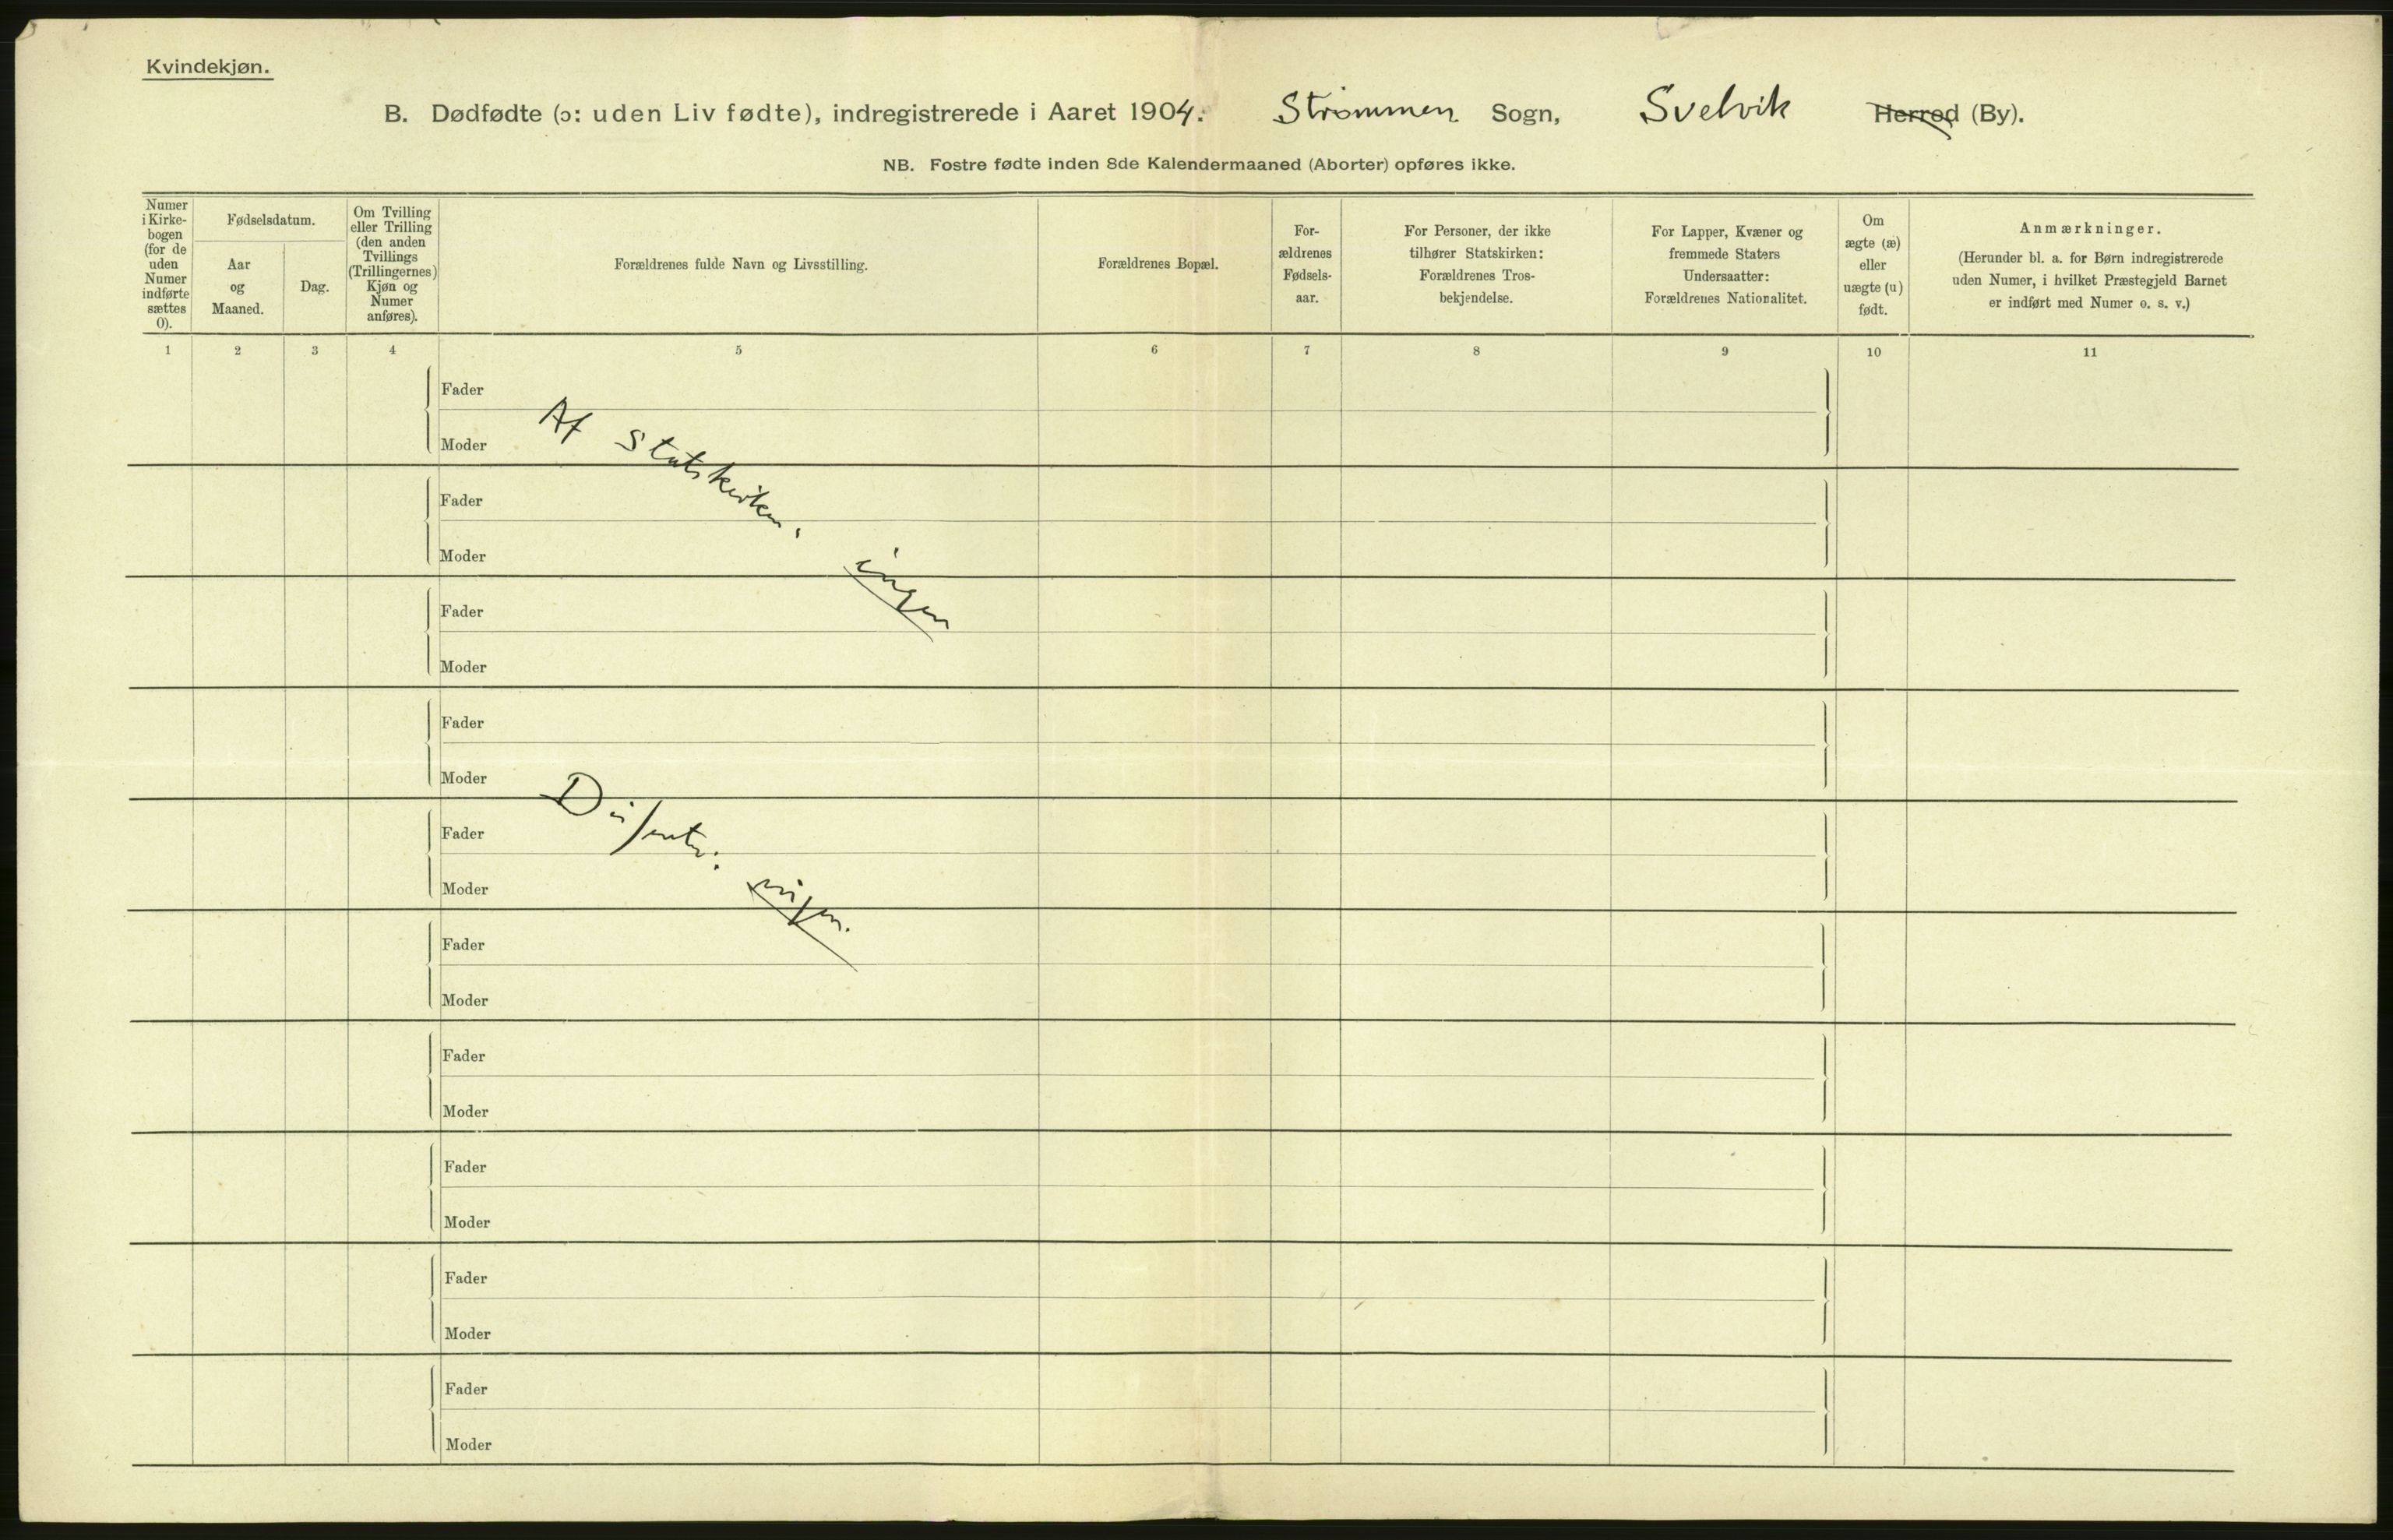 Kvindekjøn.
B. Dødfødte (ɔ: uden Liv fødte), indregistrerede i Aaret 1904. Strømmen Sogn, Svelvik Herred (By).
NB. Fostre fødte inden 8de Kalendermaaned (Aborter) opføres ikke.
Numer
i Kirke-
bogen
(for de
uden
Numer
indførte
sættes
0).
Fødselsdatum.
Aar
og
Maaned.
Dag.
Om Tvilling
eller Trilling
(den anden
Tvillings
(Trillingernes)
Kjøn og
Numer
anføres).
Forældrenes fulde Navn og Livsstilling.
Forældrenes Bopæl.
For-
ældrenes
Fødsels-
aar.
For Personer, der ikke
tilhører Statskirken:
Forældrenes Tros-
bekjendelse.
For Lapper, Kvæner og
fremmede Staters
Undersaatter:
Forældrenes Nationalitet.
Om
ægte (æ)
eller
uægte (u)
født.
Anmærkninger.
(Herunder bl. a. for Børn indregistrerede
uden Numer, i hvilket Præstegjeld Barnet
er indført med Numer o. s. v.)
1 2 3 4 5 6 7 8 9 10 11
Fader
Af Statskirken: ingen
Moder
Fader
Moder
Fader
Moder
Fader
Moder
Dissenter: ingen.
Fader
Moder
Fader
Moder
Fader
Moder
Fader
Moder
Fader
Moder
Fader
Moder